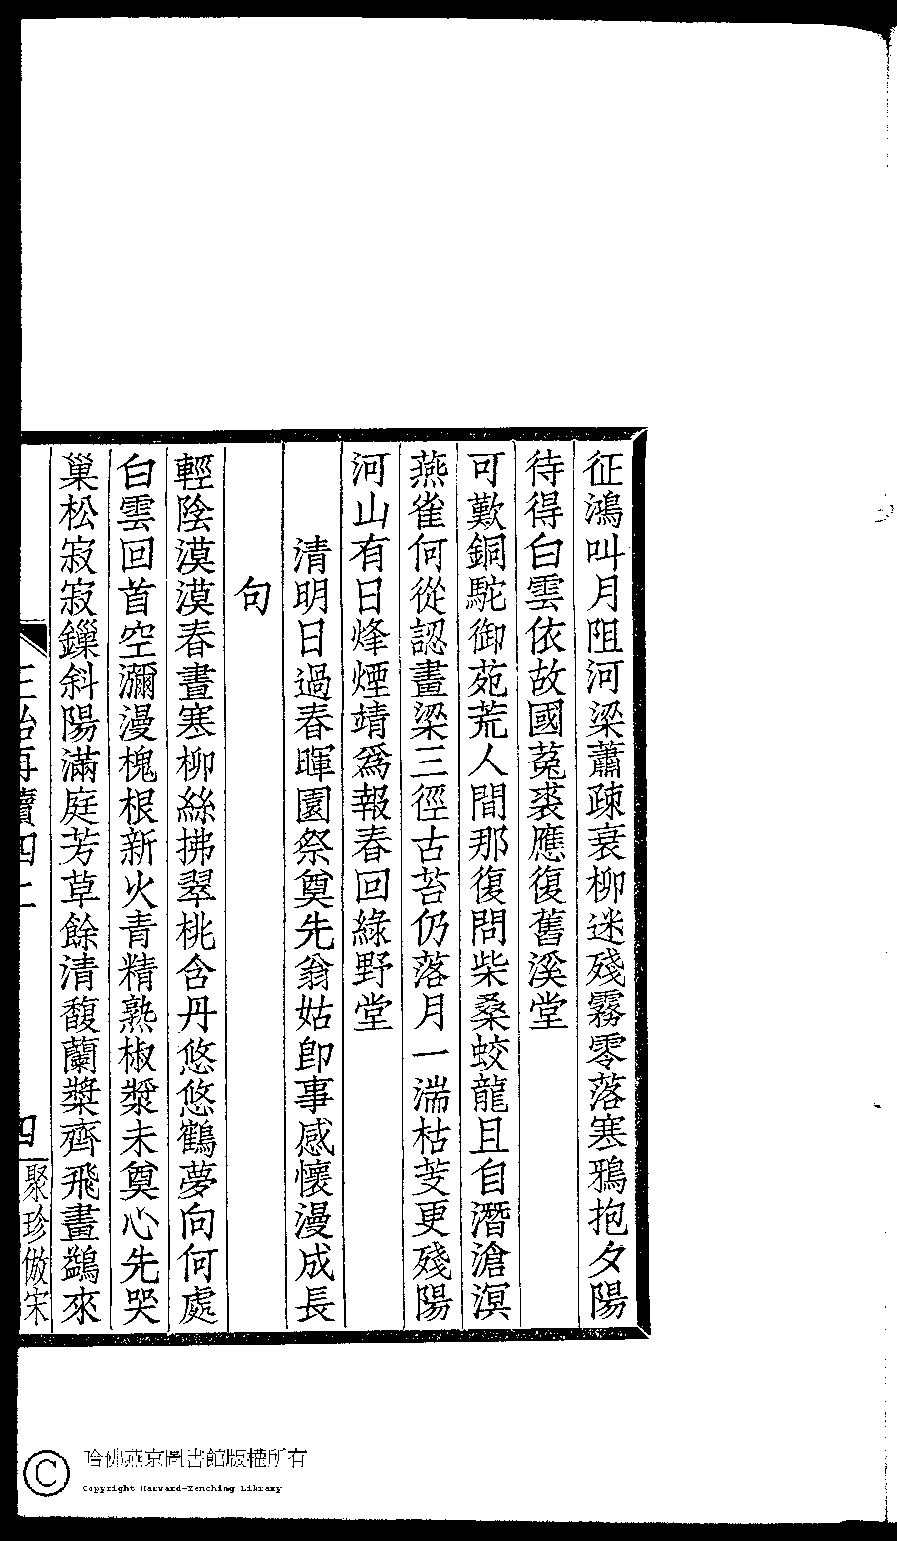 征鴻叫月阻河梁蕭疎衰柳迷殘霧零落寒鴉抱夕陽
待得白雲依故國菟裘應復舊溪堂
可歎銅駝御苑荒人間那復問柴桑蛟龍且自潛滄溟
燕雀何從認畫梁三徑古苔仍落月一湍枯芰更殘陽
河山有日烽煙靖爲報春回綠野堂
清明日過春暉園祭奠先翁姑卽事感懷漫成長
句
輕陰漠漠春晝寒柳絲拂翠桃含丹悠悠鶴夢向何處
白雲回首空瀰漫槐根新火青精熟椒漿未奠心先哭
巢松寂寂鏁斜陽滿庭芳草餘清馥蘭槳齊飛畫鷁來
四
聚珍倣宋
哈佛燕京圖書館版權所有
Copyright Harvard-Yenching Library